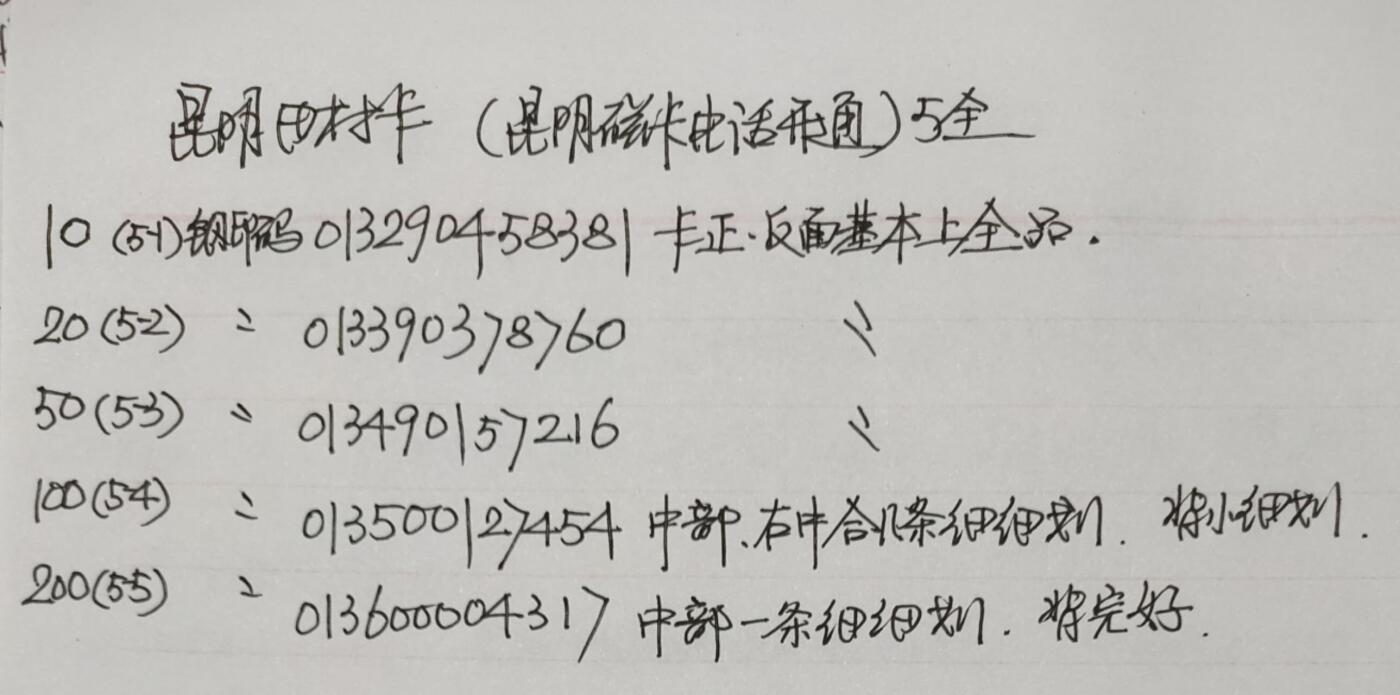 昆明田村卡（昆明磁卡电话开通）5全
10 (5-1) 钢印码 013290458381 卡正.反面基本上全品.
20 (5-2) 〃 013390378760 〃
50 (5-3) 〃 013490157216 〃
100 (5-4) 〃 013500127454 中部、右中各几条细细划. 小细划.
200 (5-5) 〃 013600004317 中部一条细细划. 完好.